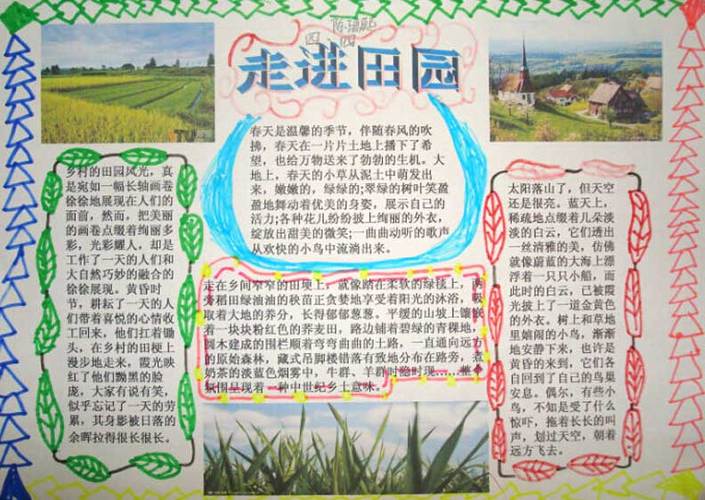 陈
四、四
走进田园
春天是温馨的季节，伴随春风的吹
拂，春天在一片片土地上播下了希
望，也给万物送来了勃勃的生机。大
地上，春天的小草从泥土中萌发出
来，嫩嫩的，绿绿的;翠绿的树叶笑盈
盈地舞动着优美的身姿，展示自己的
活力;各种花儿纷纷披上绚丽的外衣，
绽放出甜美的微笑;一曲曲动听的歌声
从欢快的小鸟中流淌出来。
乡村的田园风光，真
是宛如一幅长轴画卷
徐徐地展现在人们的
面前，然而，把美丽
的画卷点缀着绚丽多
彩，光彩耀人，却是
工作了一天的人们和
大自然巧妙的融合的
徐徐展现。黄昏时
节，耕耘了一天的人
们带着喜悦的心情收
工回来，他们扛着锄
头，在乡村的田梗上
漫步地走来，霞光映
红了他们黝黑的脸
庞，大家有说有笑，
似乎忘记了一天的劳
累，其身影被日落的
余晖拉得很长很长。
走在乡间窄窄的田埂上，就像踏在柔软的绿毯上，两
旁稻田绿油油的秧苗正贪婪地享受着阳光的沐浴，吸
取着大地的养分，长得郁郁葱葱。平缓的山坡上镶嵌
着一块块粉红色的荞麦田，路边铺着碧绿的青稞地，
圆木建成的围栏顺着弯弯曲曲的土路，一直通向远方
的原始森林，藏式吊脚楼错落有致地分布在路旁，煮
奶茶的淡蓝色烟雾中，牛群、羊群时隐时现……整个
氛围呈现着一种中世纪乡土意味。
太阳落山了，但天空
还是很亮。蓝天上，
稀疏地点缀着几朵淡
淡的白云，它们透出
一丝清雅的美，仿佛
就像蔚蓝的大海上漂
浮着一只只小船，而
此时的白云，已被霞
光披上了一道金黄色
的外衣。树上和草地
里嬉闹的小鸟，渐渐
地安静下来，也许是
黄昏的来到，它们各
自回到了自己的鸟巢
安息。偶尔，有些小
鸟，不知是受了什么
惊吓，拖着长长的叫
声，划过天空，朝着
远方飞去。